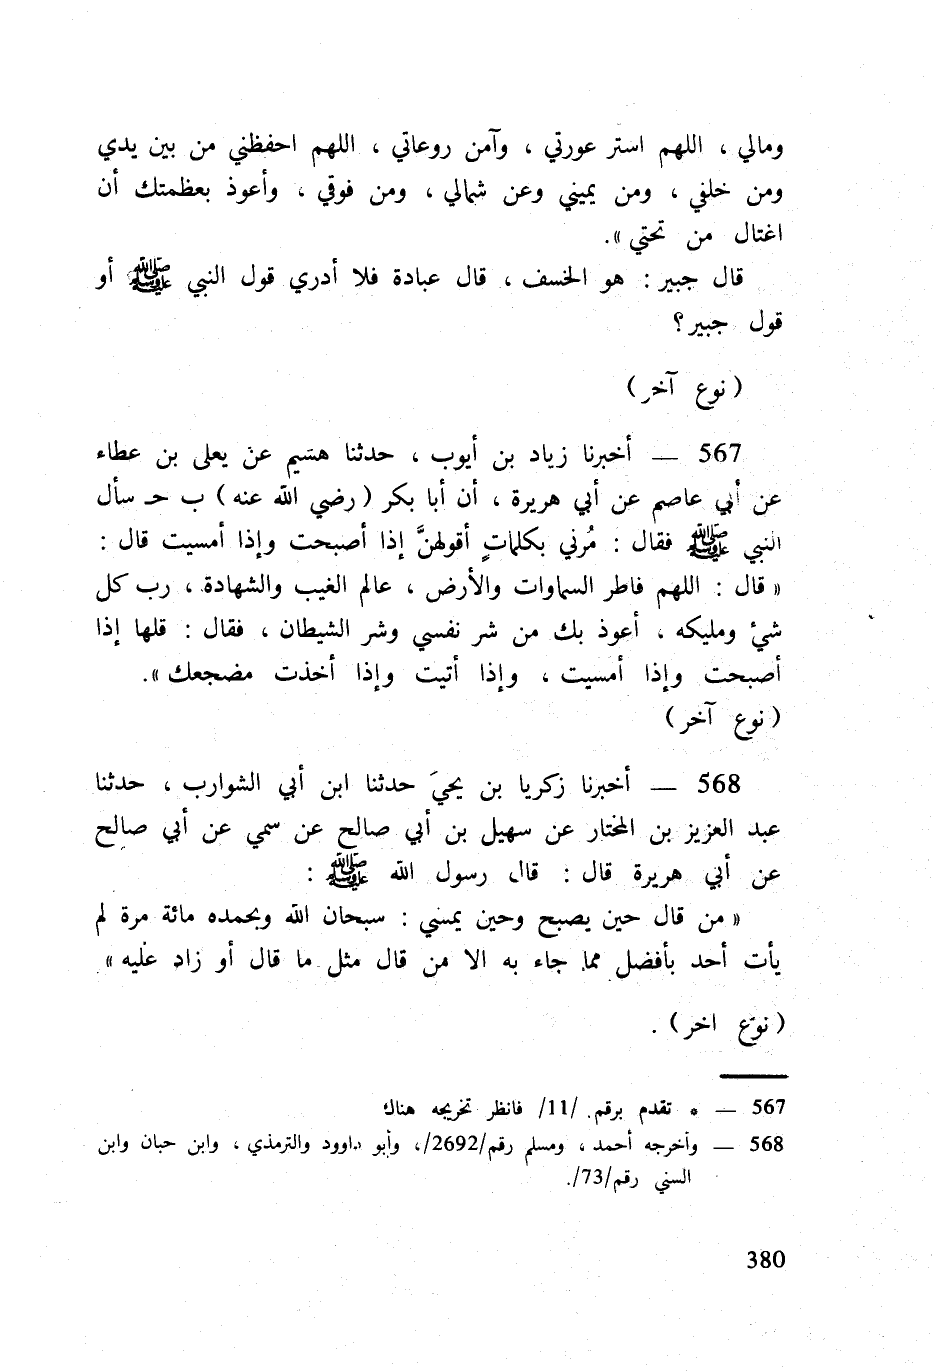 ومالي ، اللهم استر عورتي ، وآمن روعاتي ، اللهم احفظني من بين يدي
ومن خلفي ، ومن يميني وعن شمالي ، ومن فوقي ، وأعوذ بعظمتك أن
اغتال من تحتي ».
قال جبير : هو الخسف ، قال عبادة فلا أدري قول النبي ﷺ أو
قول جبير ؟
( نوع آخر )
567 — أخبرنا زياد بن أيوب ، حدثنا هشيم عن يعلى بن عطاء
عن أبي عاصم عن أبي هريرة ، أن أبا بكر ( رضي الله عنه ) ب حـ سأل
النبي ﷺ فقال : مُرني بكلماتٍ أقولهنَّ إذا أصبحت وإذا أمسيت قال :
« قال : اللهم فاطر السماوات والأرض ، عالم الغيب والشهادة ، رب كل
شيْ ومليكه ، أعوذ بك من شر نفسي وشر الشيطان ، فقال : قلها إذا
أصبحت وإذا أمسيت ، وإذا أتيت وإذا أخذت مضجعك ».
( نوع آخر )
568 — أخبرنا زكريا بن يحيَ حدثنا ابن أبي الشوارب ، حدثنا
عبد العزيز بن المختار عن سهيل بن أبي صالح عن سمي عن أبي صالح
عن أبي هريرة قال : قال رسول الله ﷺ :
« من قال حين يصبح وحين يمسي : سبحان الله وبحمده مائة مرة لم
يأت أحد بأفضل مما جاء به الا من قال مثل ما قال أو زاد عليه »
( نوع اخر ) .
567 — * تقدم برقم /11/ فانظر تخريجه هناك
568 — وأخرجه أحمد ، ومسلم رقم/2692/، وأبو داوود والترمذي ، وابن حبان وابن
السني رقم/73/.
380